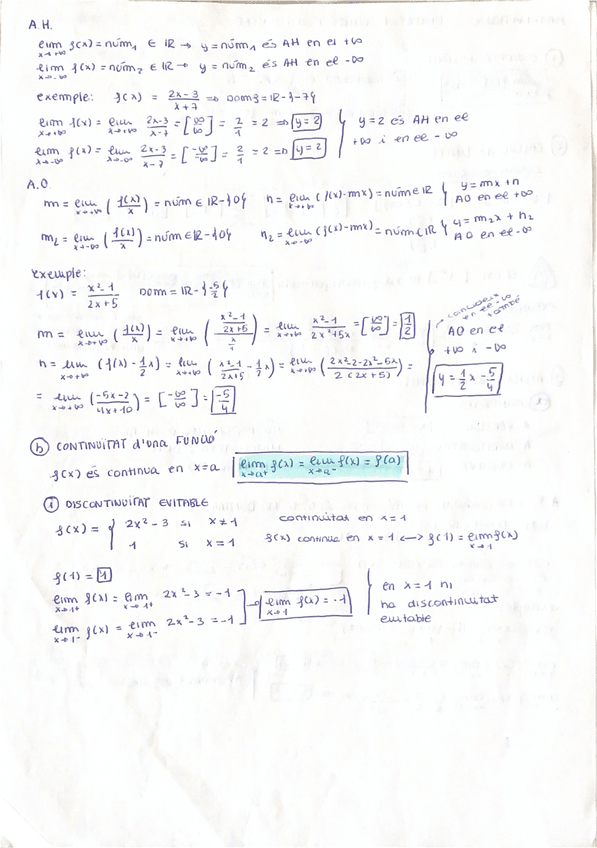 A.H.
lim x→+∞ f(x) = núm₁ ∈ IR → y = núm₁ és AH en el +∞
lim x→-∞ f(x) = núm₂ ∈ IR → y = núm₂ és AH en el -∞
exemple: f(x) = (2x-3)/(x+7) ⇒ Domf = IR-{-7}
lim x→+∞ f(x) = lim x→+∞ (2x-3)/(x-7) = [∞/∞] = 2/1 = 2 ⇒ y=2
lim x→-∞ f(x) = lim x→-∞ (2x-3)/(x-7) = [-∞/-∞] = 2/1 = 2 ⇒ y=2
y=2 és AH en el
+∞ i en el -∞
A.O.
m = lim x→+∞ (f(x)/x) = núm ∈ IR-{0} n = lim x→+∞ (f(x)-mx) = núm ∈ IR } y = mx+n AO en el +∞
m₂ = lim x→-∞ (f(x)/x) = núm ∈ IR-{0} n₂ = lim x→-∞ (f(x)-mx) = núm ∈ IR } y = m₂x + n₂ AO en el -∞
exemple:
f(x) = (x²-1)/(2x+5) Dom = IR-{-5/2}
m = lim x→+∞ (f(x)/x) = lim x→+∞ (((x²-1)/(2x+5))/(x/1)) = lim x→+∞ (x²-1)/(2x²+5x) = [∞/∞] = 1/2
n = lim x→+∞ (f(x) - 1/2 x) = lim x→+∞ ((x²-1)/(2x+5) - 1/2 x) = lim x→+∞ ((2x²-2-2x²-5x)/(2(2x+5))) =
= lim x→+∞ ((-5x-2)/(4x+10)) = [-∞/∞] = -5/4
en el -∞
també
AO en el
+∞ i -∞
y = 1/2 x - 5/4
b) CONTINUÏTAT d'una FUNCIÓ
f(x) és contínua en x=a lim x→a⁺ f(x) = lim x→a⁻ f(x) = f(a)
① DISCONTINUÏTAT EVITABLE
f(x) = { 2x²-3 si x≠1
1 si x=1
continuïtat en x=1
f(x) contínua en x=1 ⟷ f(1) = lim x→1 f(x)
f(1) = 1
lim x→1⁺ f(x) = lim x→1⁺ 2x²-3 = -1
lim x→1⁻ f(x) = lim x→1⁻ 2x²-3 = -1
lim x→1 f(x) = -1
en x=1 hi
ha discontinuïtat
evitable